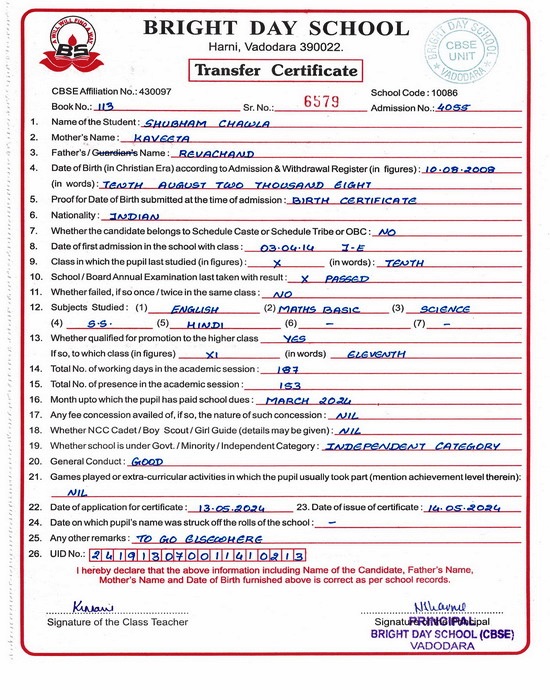 A WILL WILL FIND A WAY
BS
BRIGHT DAY SCHOOL
Harni, Vadodara 390022.
Transfer Certificate
BRIGHT DAY SCHOOL
CBSE
UNIT
VADODARA
CBSE Affiliation No.: 430097 School Code : 10086
Book No.: 113 Sr. No.: 6579 Admission No.: 4055
1. Name of the Student : SHUBHAM CHAWLA
2. Mother's Name : KAVEETA
3. Father's / Guardian's Name : REVACHAND
4. Date of Birth (in Christian Era) according to Admission & Withdrawal Register (in figures) : 10.08.2008
(in words) : TENTH AUGUST TWO THOUSAND EIGHT
5. Proof for Date of Birth submitted at the time of admission : BIRTH CERTIFICATE
6. Nationality : INDIAN
7. Whether the candidate belongs to Schedule Caste or Schedule Tribe or OBC : NO
8. Date of first admission in the school with class : 03.04.14 I-E
9. Class in which the pupil last studied (in figures) : X (in words) : TENTH
10. School / Board Annual Examination last taken with result : X PASSED
11. Whether failed, if so once / twice in the same class : NO
12. Subjects Studied : (1) ENGLISH (2) MATHS BASIC (3) SCIENCE
(4) S.S. (5) HINDI (6) – (7) –
13. Whether qualified for promotion to the higher class YES
If so, to which class (in figures) XI (in words) ELEVENTH
14. Total No. of working days in the academic session : 187
15. Total No. of presence in the academic session : 153
16. Month upto which the pupil has paid school dues : MARCH 2024
17. Any fee concession availed of, if so, the nature of such concession : NIL
18. Whether NCC Cadet / Boy Scout / Girl Guide (details may be given) : NIL
19. Whether school is under Govt. / Minority / Independent Category : INDEPENDENT CATEGORY
20. General Conduct : GOOD
21. Games played or extra-curricular activities in which the pupil usually took part (mention achievement level therein):
NIL
22. Date of application for certificate : 13.05.2024 23. Date of issue of certificate : 14.05.2024
24. Date on which pupil's name was struck off the rolls of the school : –
25. Any other remarks : TO GO ELSEWHERE
26. UID No.: 241913070011410213
I hereby declare that the above information including Name of the Candidate, Father's Name,
Mother's Name and Date of Birth furnished above is correct as per school records.
Signature of the Class Teacher Signature of the Principal
PRINCIPAL
BRIGHT DAY SCHOOL (CBSE)
VADODARA